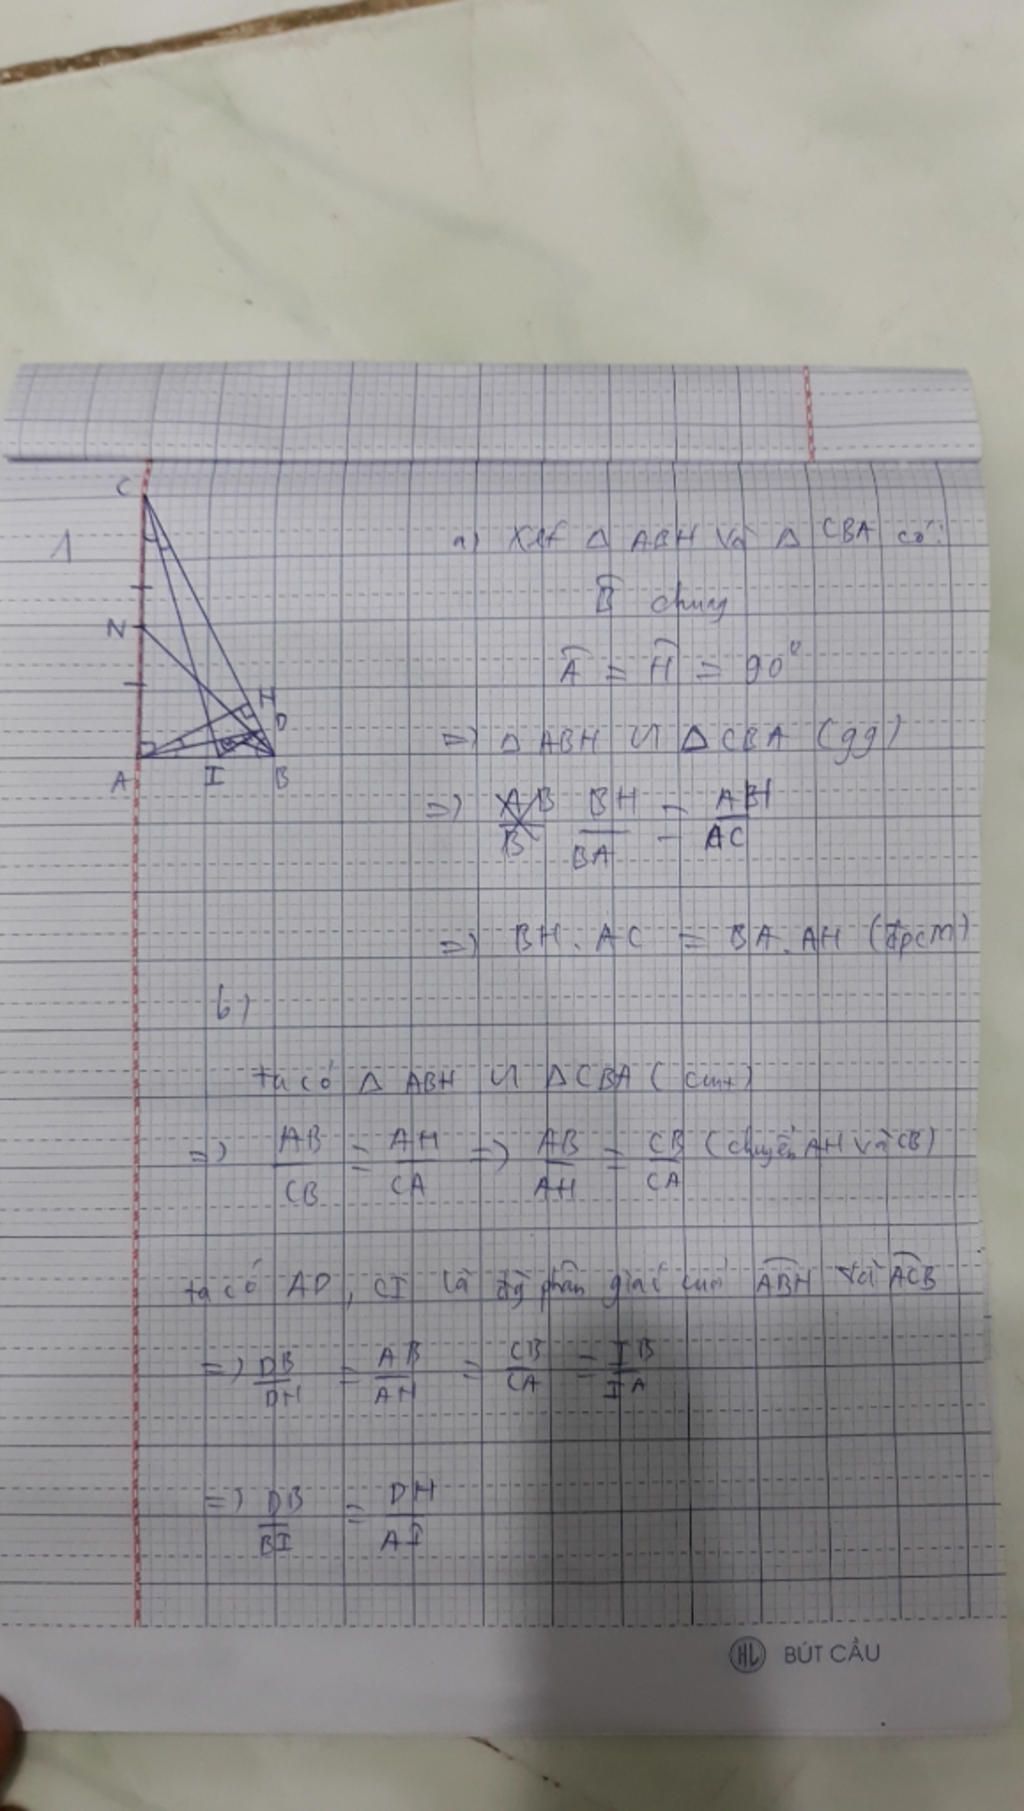 1
C
N
H
D
A I B
a) Xét Δ ABH và Δ CBA có:
B̂ chung
Â = Ĥ = 90°
=> Δ ABH ∽ Δ CBA (gg)
=> BH/BA = AH/AC
=> BH. AC = BA. AH (đpcm)
b)
ta có Δ ABH ∽ Δ CBA (cmt)
=> AB/CB = AH/CA => AB/AH = CB/CA (chuyển AH và CB)
ta có AD, CI là phân giác của ABH và ACB
=> DB/DH = AB/AH = CB/CA = IB/IA
=> DB/BI = DH/AI
HL BÚT CẦU